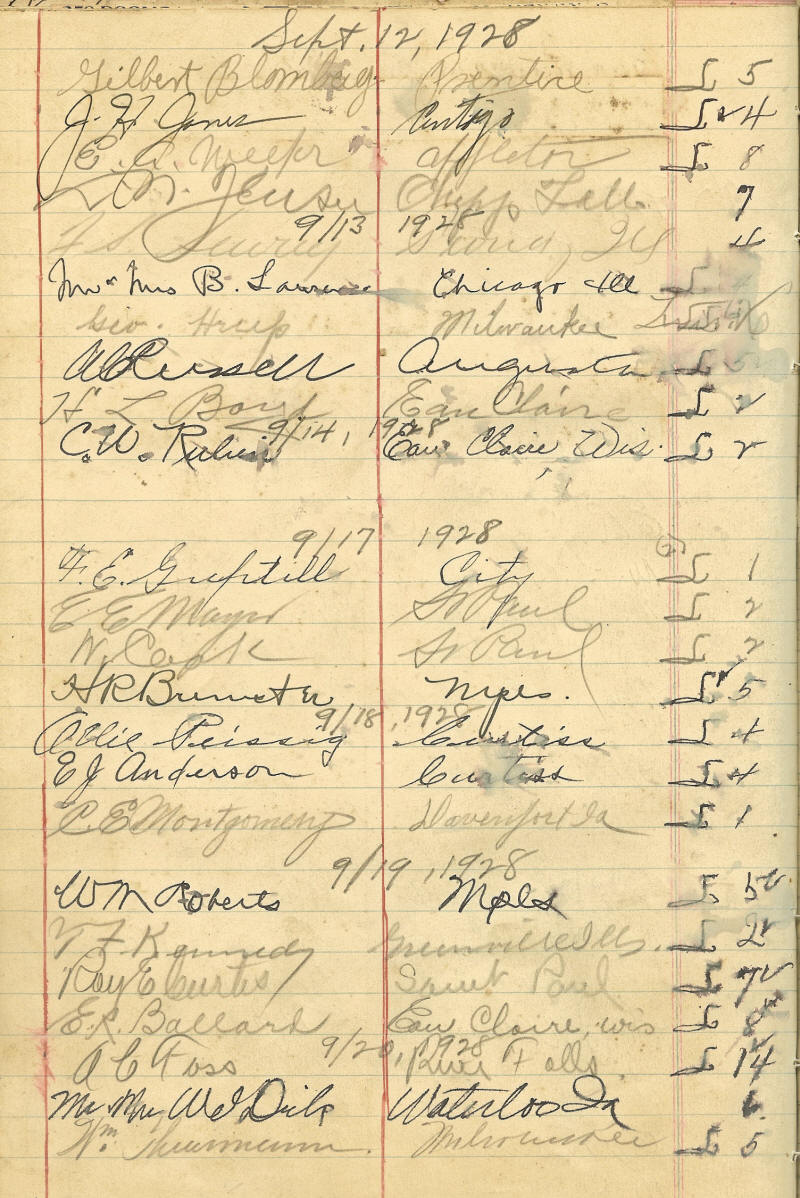 Sept. 12, 1928
Gilbert Blomberg Prentice L 5
J. H. Jones Antigo L 4
E. A. Appleton L 8
Chipp Falls 7
9/13 1928
Ill 4
Mr & Mrs B. Lawrence Chicago Ill L
Geo. Milwaukee
A C Russell Augusta L 5
H L Eau Claire L 2
9/14, 1928
C. W. Rubin Eau Claire Wis. L 2
9/17 1928
F. E. Guptill City L 1
E E Mayer St Paul L 2
W. Cook St Paul L 2
H R Brewster Mpls. L 5
9/18, 1928
Ollie Peissig Curtiss L 4
E J Anderson Curtiss L 4
C. E Montgomery Davenport Ia L 1
9/19, 1928
W M Roberts Mpls L 5
F. Kennedy Greenville Ills. L 2
Ray E Curtis Saint Paul L 7
E. R. Ballard Eau Claire, Wis L 8
9/20, 1928
A C Foss River Falls. L 14
Mr Mrs W J Waterloo Ia 6
Wm. Milwaukee L 5